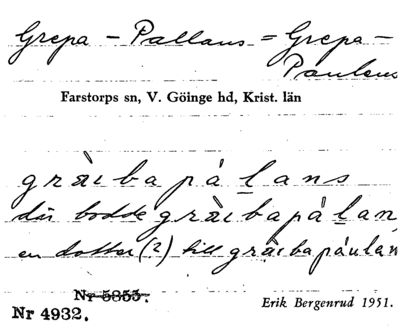 Grepa - Pallans = Grepa-
Paulens
Farstorps sn, V. Göinge hd, Krist. län
gràιbapálans
där bodde gràιbapálan
en dotter (?) till gràιbapáulan
Nr 5855.
Nr 4932.
Erik Bergenrud 1951.